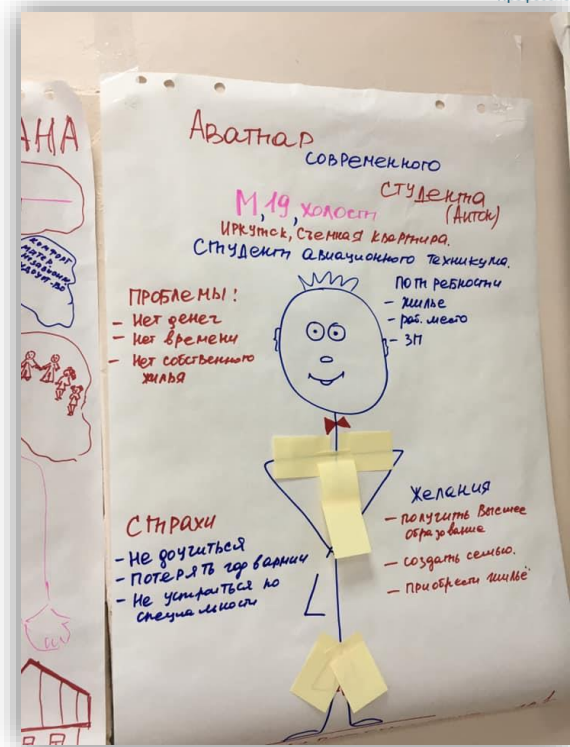 АНА
КОМФОРТ
МАТЕР
Аватар
современного
студента
(Аитсн)
М, 19, холост
Иркутск, Съемная квартира.
Студент авиационного техникума.
ПРОБЛЕМЫ:
- Нет денег
- Нет времени
- Нет собственного
жилья
Потребности
- жилье
- раб. место
- ЗП
Страхи
- Не доучиться
- Потерять год в армии
- Не устроиться по
специальности
Желания
- получить Высшее
образование
- создать семью.
- приобрести жильё